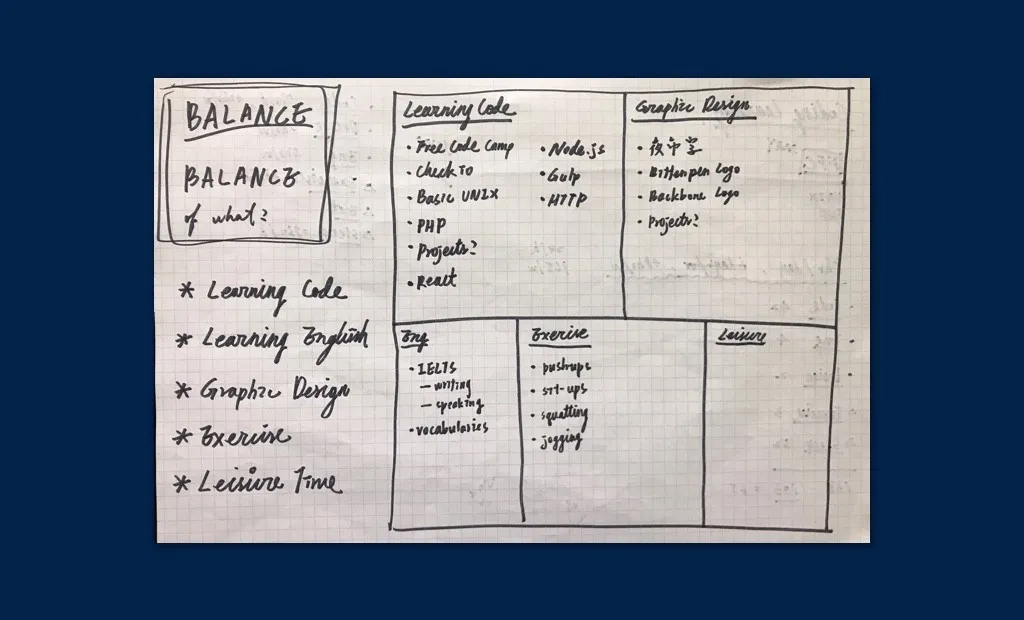 BALANCE
BALANCE
of what?
* Learning Code
* Learning English
* Graphic Design
* Exercise
* Leisure Time
Learning Code
• Free Code Camp
• Check IO
• Basic UNIX
• PHP
• Projects?
• React
• Node.js
• Gulp
• HTTP
Graphic Design
• Bitterpen Logo
• Backbone Logo
• Projects?
Eng
• IELTS
— writing
— speaking
• vocabularies
Exercise
• pushups
• sit-ups
• squatting
• jogging
Leisure